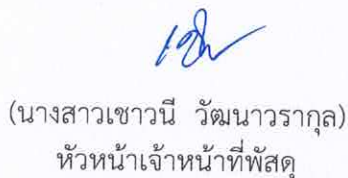 (นางสาวเชาวนี วัฒนาวรากุล)
หัวหน้าเจ้าหน้าที่พัสดุ